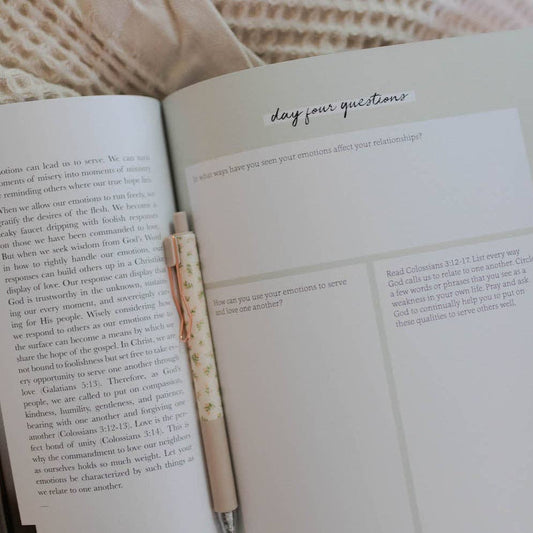 otions can lead us to serve. We can turn
oments of misery into moments of ministry
reminding others where our true hope lies.
When we allow our emotions to run freely, we
gratify the desires of the flesh. We become a
eaky faucet dripping with foolish responses
on those we have been commanded to love.
But when we seek wisdom from God's Word
in how to rightly handle our emotions, our
responses can build others up in a Christlike
display of love. Our response can display that
God is trustworthy in the unknown, sustain-
ing our every moment, and sovereignly car-
ing for His people. Wisely considering how
we respond to others as our emotions rise to
the surface can become a means by which we
share the hope of the gospel. In Christ, we are
not bound to foolishness but set free to take ev-
ery opportunity to serve one another through
love (Galatians 5:13). Therefore, as God's
people, we are called to put on compassion,
kindness, humility, gentleness, and patience,
bearing with one another and forgiving one
another (Colossians 3:12-13). Love is the per-
fect bond of unity (Colossians 3:14). This is
why the commandment to love our neighbors
as ourselves holds so much weight. Let your
emotions be characterized by such things as
we relate to one another.
day four questions
In what ways have you seen your emotions affect your relationships?
How can you use your emotions to serve
and love one another?
Read Colossians 3:12-17. List every way
God calls us to relate to one another. Circle
a few words or phrases that you see as a
weakness in your own life. Pray and ask
God to continually help you to put on
these qualities to serve others well.